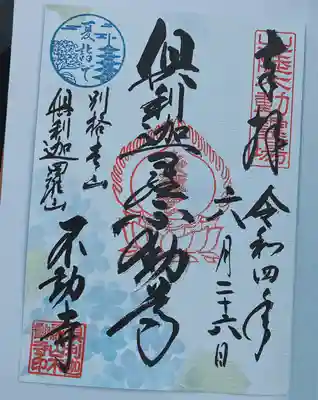 奉拝
令和四年
六月二十六日
倶利迦羅不動尊
夏詣
別格本山
倶利迦羅山
不動寺